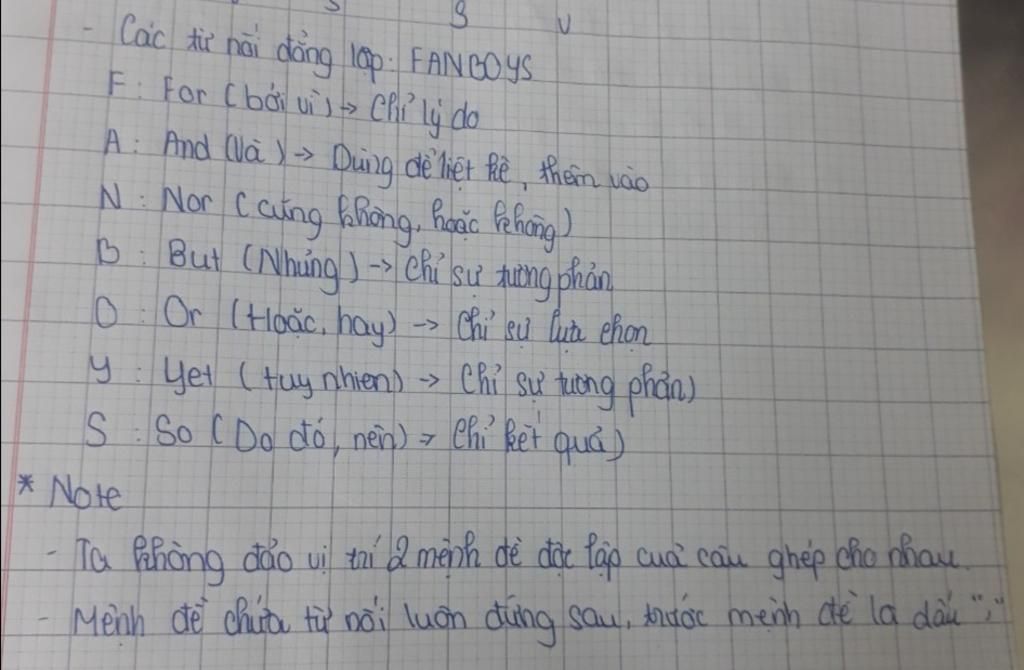 S S V
- Các từ nối đẳng lập: FANBOYS
F: For (bởi vì) → Chỉ lý do
A: And (Và) → Dùng để liệt kê, thêm vào
N: Nor (cũng không, hoặc không)
B: But (Nhưng) → chỉ sự tương phản
O: Or (Hoặc, hay) → Chỉ sự lựa chọn
Y: Yet (tuy nhiên) → Chỉ sự tương phản)
S: So (Do đó, nên) → Chỉ kết quả)
* Note
- Ta không đảo vị trí 2 mệnh đề độc lập của câu ghép cho nhau.
- Mệnh đề chứa từ nối luôn đứng sau, trước mệnh đề là dấu ";"